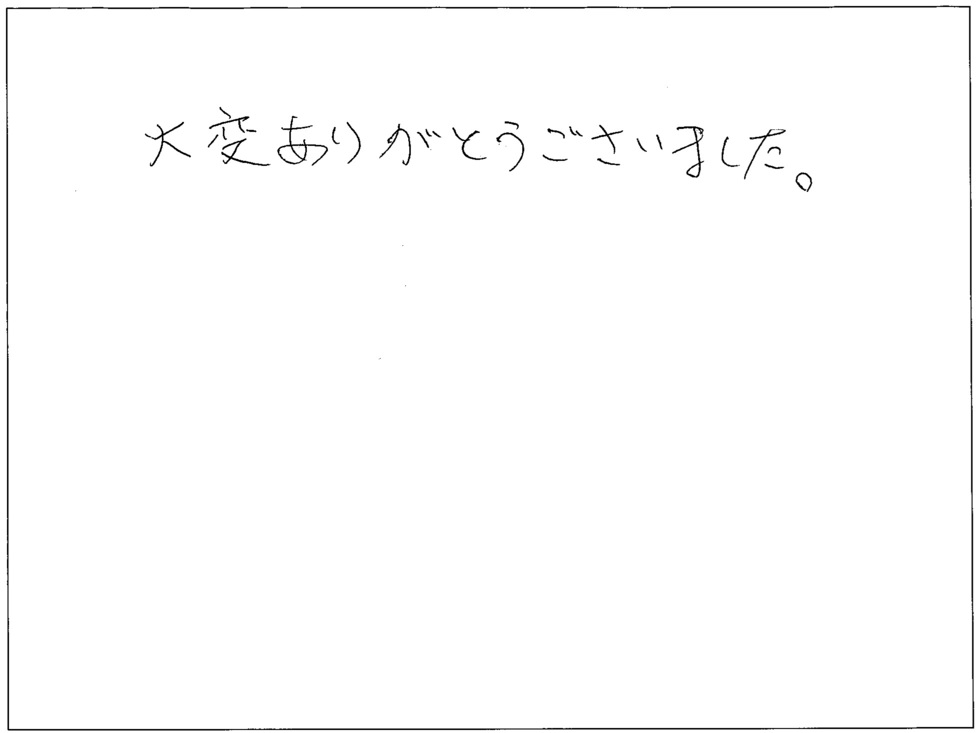 大変ありがとうございました。